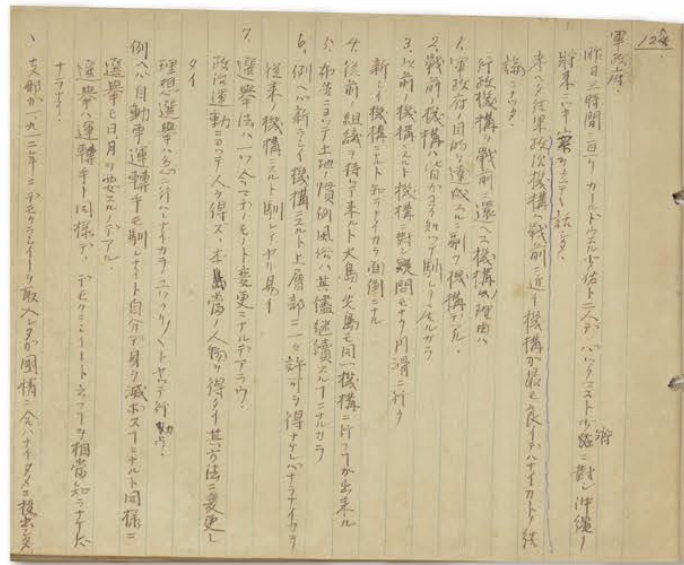 124
軍政府.
昨日三時間ニ亘リカールドウエル少佐ト二人デハックマスト少將ニ對シ沖縄ノ
將来ニツキ案ヲ立テ話シタ.
考ヘタ結果政治機構ヘ戰前ニ近キ機構ガ最モ良イデハナイカトノ結
論ニナッタ.
行政機構ヲ戰前ニ還ヘス機構ノ理由ハ
1. 軍政府ノ目的ヲ達成スルニ副フ機構デアル.
2. 戰前ノ機構ハ皆ガヨク知ッテ馴レテ居ルカラ
3. 以前ノ機構ニスルト機構ニ對シ疑問モナク円滑ニ行ク
新シイ機構ニスルト知ラナイカラ面倒ニナル
4. 従前ノ組織ヲ持チ来ルト大島、先島モ同一機構ニ行フコトガ出来ル
5. 布告ニヨッテ土地ノ慣例風俗ハ其儘継續スルコトニナルカラ
6. 例ヘバ新ラシイ機構ニスルト上層部ニ一々許可ヲ得ナケレバナラナイカラ
従来ノ機構ニスルト馴レテヤリ易イ
7. 選挙法ハ一ツ今マデノモノト変更ニナルデアラウ.
政治運動ニヨッテ人ヲ得ズ、本島當ノ人物ヲ得タイ其方法ニ変更シ
タイ
理想選挙ハ急ニ行ハレナイカラユックリトヤッテ行カウ.
例ヘバ自動車運轉手モ馴レナイト自分デ身ヲ滅ボスコトニナルト同様ニ
選挙モ日月ヲ要スルノデアル.
選挙ハ運轉手ト同様デ、デモクラシイト云フコトヲ相當知ラナケレバ
ナラナイ.
、支那ガ一九一二年ニデモクラシイーヲ取入レタガ國情ニ合ハナイタメ